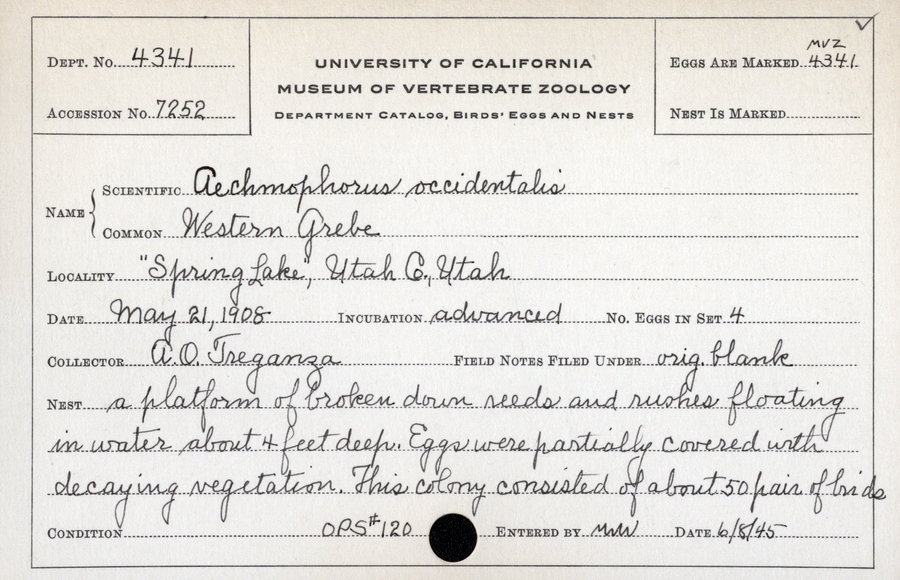 DEPT. No. 4341
ACCESSION No. 7252
UNIVERSITY OF CALIFORNIA
MUSEUM OF VERTEBRATE ZOOLOGY
DEPARTMENT CATALOG, BIRDS' EGGS AND NESTS
MVZ
EGGS ARE MARKED 4341
NEST IS MARKED
NAME
SCIENTIFIC Aechmophorus occidentalis
COMMON Western Grebe
LOCALITY "Spring Lake", Utah Co., Utah
DATE May 21, 1908 INCUBATION advanced No. EGGS IN SET 4
COLLECTOR A.O. Treganza FIELD NOTES FILED UNDER orig. blank
NEST a platform of broken down reeds and rushes floating
in water about 4 feet deep. Eggs were partially covered with
decaying vegetation. This colony consisted of about 50 pair of birds
CONDITION OPS #120 ENTERED BY MW DATE 6/8/45